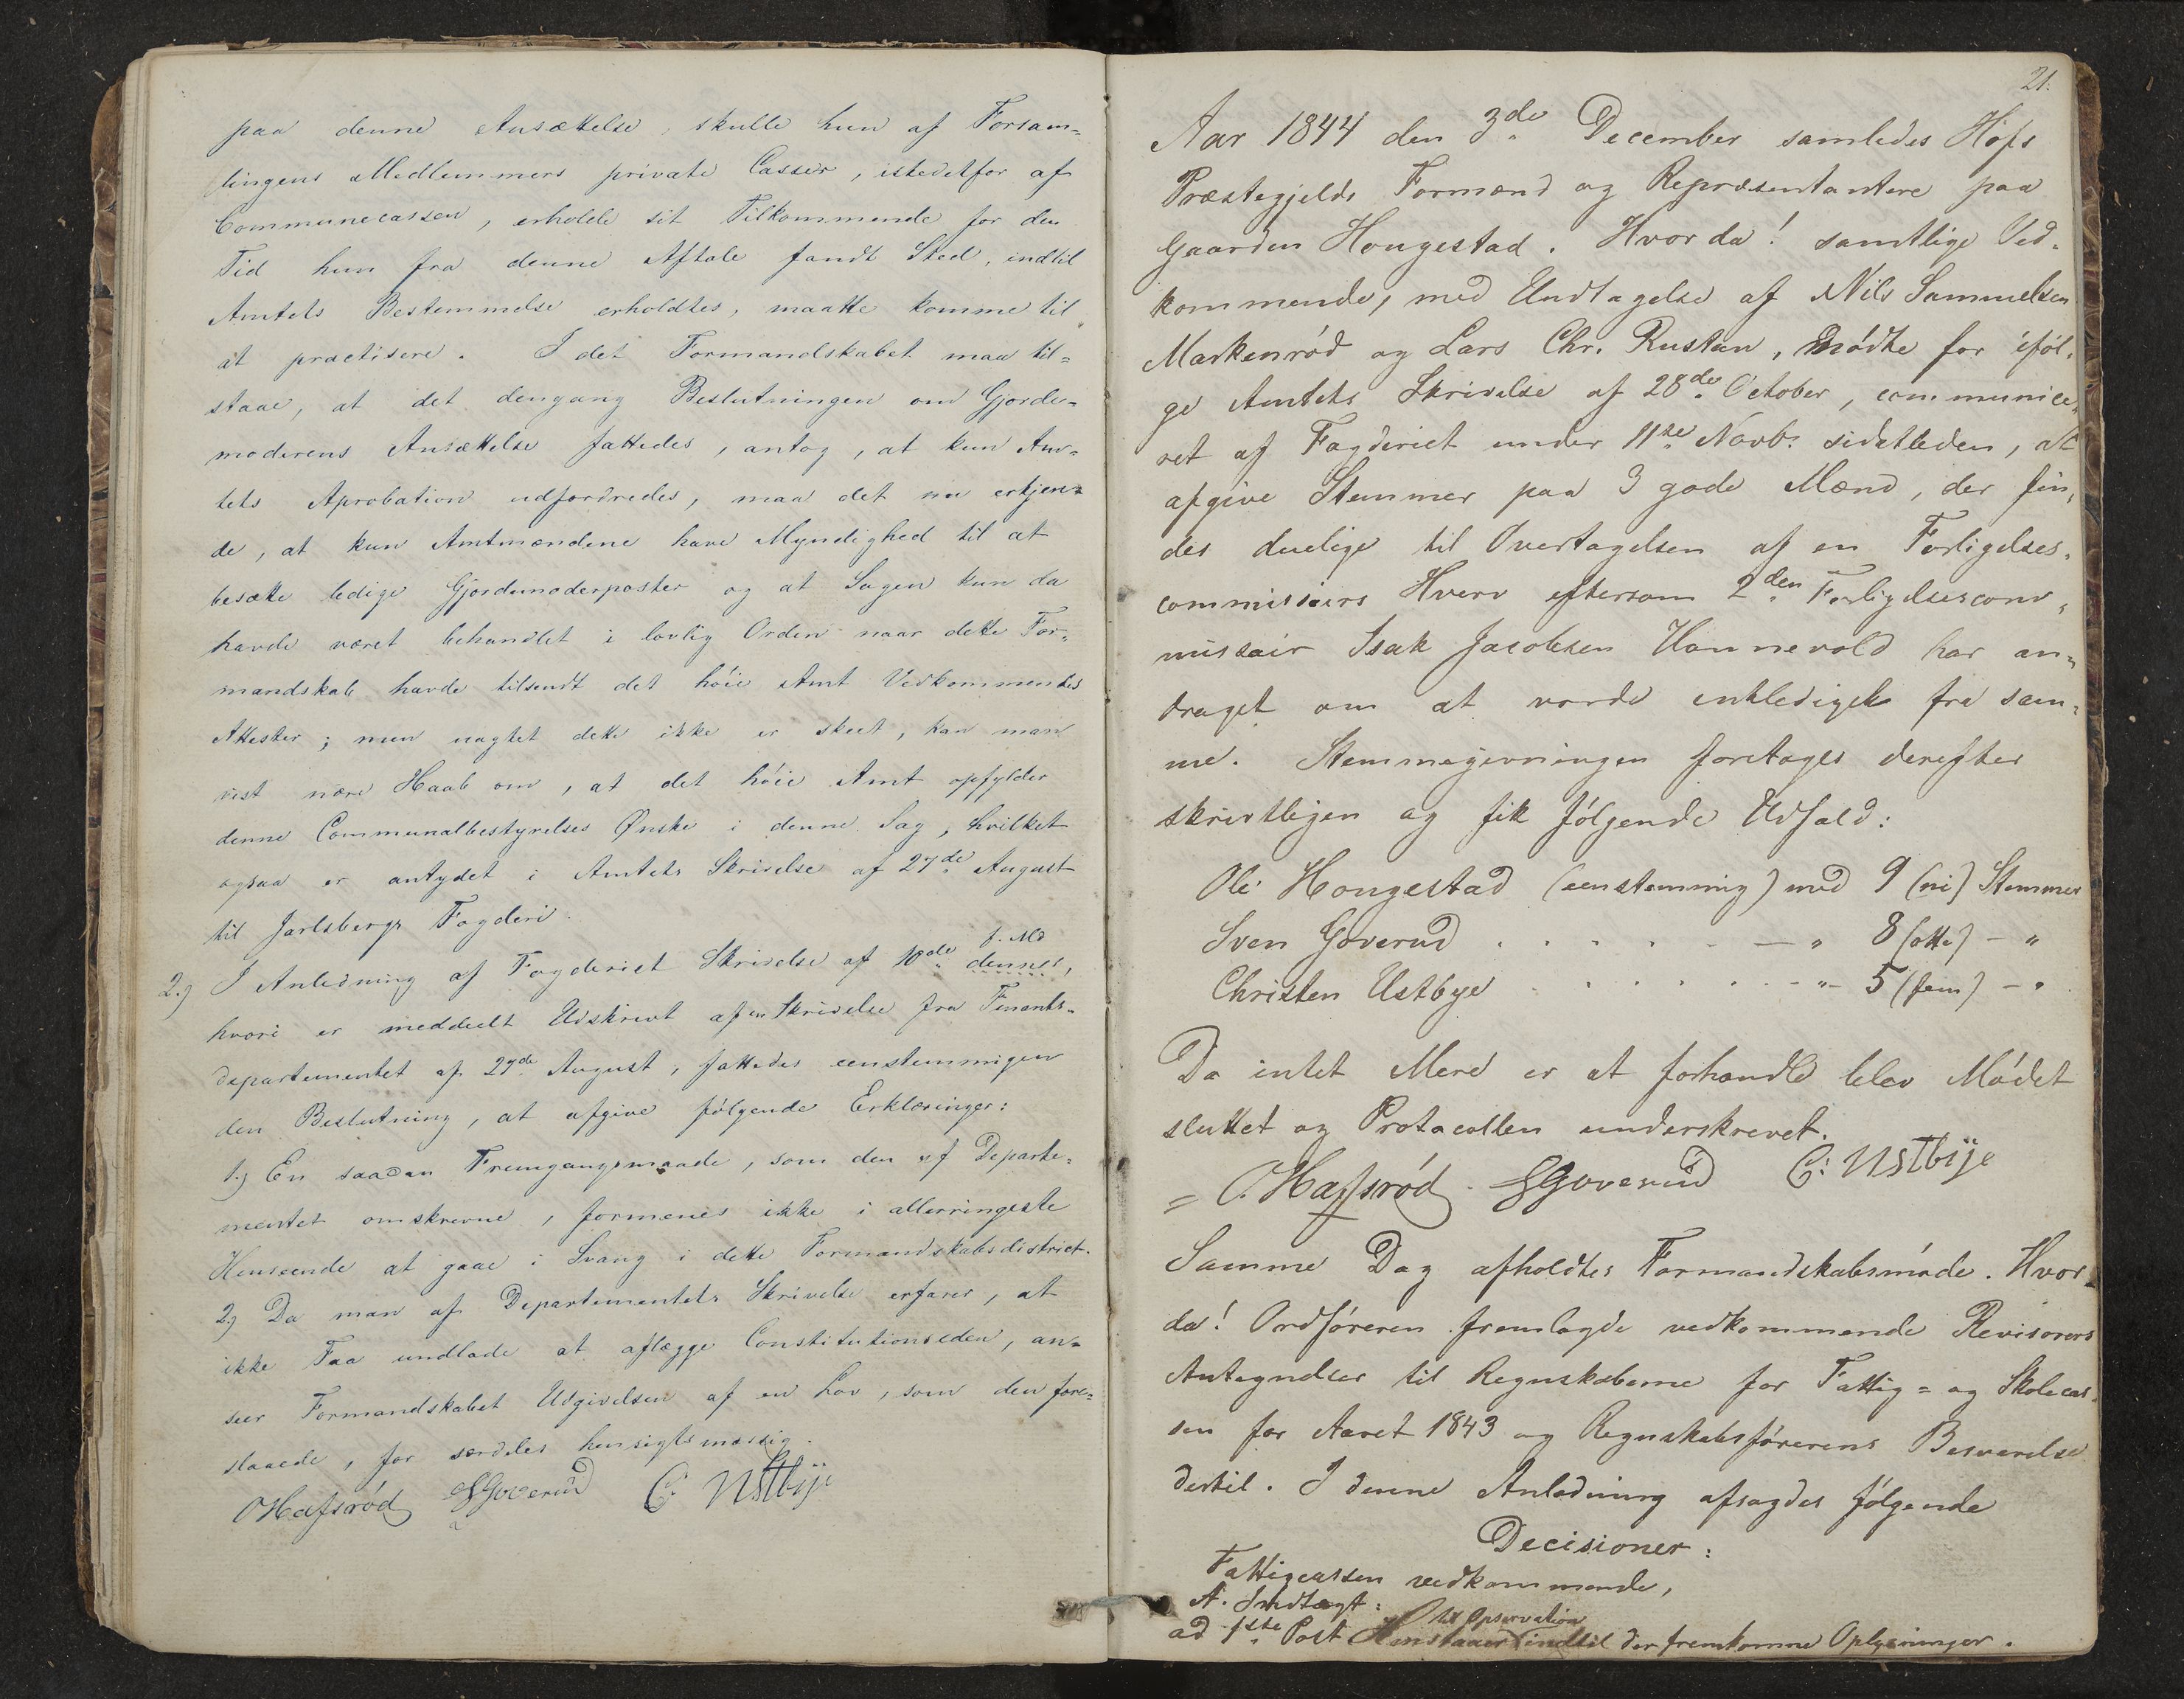 paa denne Ansættelse, skulle hun af Forsam-
lingens Medlemmers private Casser, istedetfor af
Communecassen, erholde sit Tilkommende for den
Tid hun fra denne Aftale fandt Sted, indtil
Amtets Bestemmelse erholdtes, maatte komme til
at practisere. I det Formandskabet maa til-
staae, at det dengang Beslutningen om Gjorde-
moderens Ansættelse fattedes, antog, at kun Am-
tets Aprobation udfordredes, maa det nu erkjen-
de, at kun Amtmændene have Myndighed til at
besætte ledige Gjordemoderposter og at Sagen kun da
havde været behandlet i lovlig Orden naar dette For-
mandskab havde tilsendt det höie Amt Vedkommendes
Attester; men uagtet dette ikke er skeet, kan man
vist nære Haab om, at det höie Amt opfylder
denne Communalbestyrelses Ønske i denne Sag, hvilket
ogsaa er antydet i Amtets Skrivelse af 27de August
til Jarlsbergs Fogderi.
f. Md
2.) I Anledning af Fogderiet Skrivelse af 10de dennes,
hvori er meddeelt Udskrivt af en Skrivelse fra Finants-
departementet af 27de August, fattedes eenstemmigen
den Beslutning, at afgive fölgende Erklæringer:
1.) En saadan Fremgangsmaade, som den af Departe-
mentet omskrevne, formenes ikke i allerringeste
Henseende at gaae i Svang i dette Formandskabsdistrict.
2.) Da man af Departementets Skrivelse erfarer, at
ikke Faa undlade at aflægge Constitutionseden, an-
seer Formandskabet Udgivelsen af en Lov, som den fore-
slaaede, for særdeles hensigtsmæssig.
OHafsröd SGoverud C: Ustbÿe
21.
Aar 1844 den 3de December samledes Hofs
Præstegjelds Formænd og Repræsentantere paa
Gaarden Hougestad. Hvor da! samtlige Ved-
kommende, med Undtagelse af Nils Sammuelsen
Markenröd og Lars Chr. Rustan, mödte for iföl-
ge Amtets Skrivelse af 28de October, communice-
ret af Fogderiet under 11te Novb. sidstleden, at
afgive Stemmer paa 3 gode Mænd, der fin-
des duelige til Overtagelsen af en Forligelses-
commissairs Hverv eftersom 2den Forligelsescom-
missair Isak Jacobsen Hannevold har an-
draget om at vorde entlediget fra sam-
me. Stemmegivningen foretoges derefter
skriftligen og fik fölgende Udfald:
Ole Hougestad (eenstemmig) med 9 (ni) Stemmer
Sven Goverud . . . . . . — " 8 (otte) — "
Christen Ustbye . . . . . . — " — 5 (fem) — "
Da intet Mere er at forhandle blev Mödet
sluttet og Protocollen underskrevet.
OHafsröd SGoverud C: Ustbÿe
Samme Dag afholdtes Formandskabsmöde. Hvor-
da! Ordföreren fremlagde vedkommende Revisorers
Antegnelser til Regnskaberne for Fattig- og Skolecas-
sen for Aaret 1843 og Regnskabsförerens Besvarelse
dertil. I denne Anledning afsagdes fölgende
Decisioner:
Fattigcassen vedkommende,
A. Indtægt:
til Opservation
ad 1ste Post Henstaaer indtil der fremkomme Oplysninger.